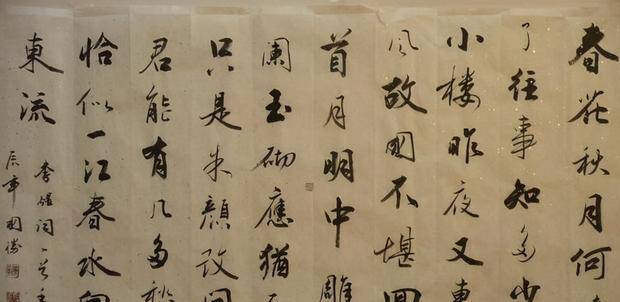 春花秋月何
了往事知多少
小楼昨夜又東
风故國不堪回
首月明中雕
闌玉砌應猶
只是朱顔改问
君能有几多愁
恰似一江春水向
東流
李煜词一首
辰年國